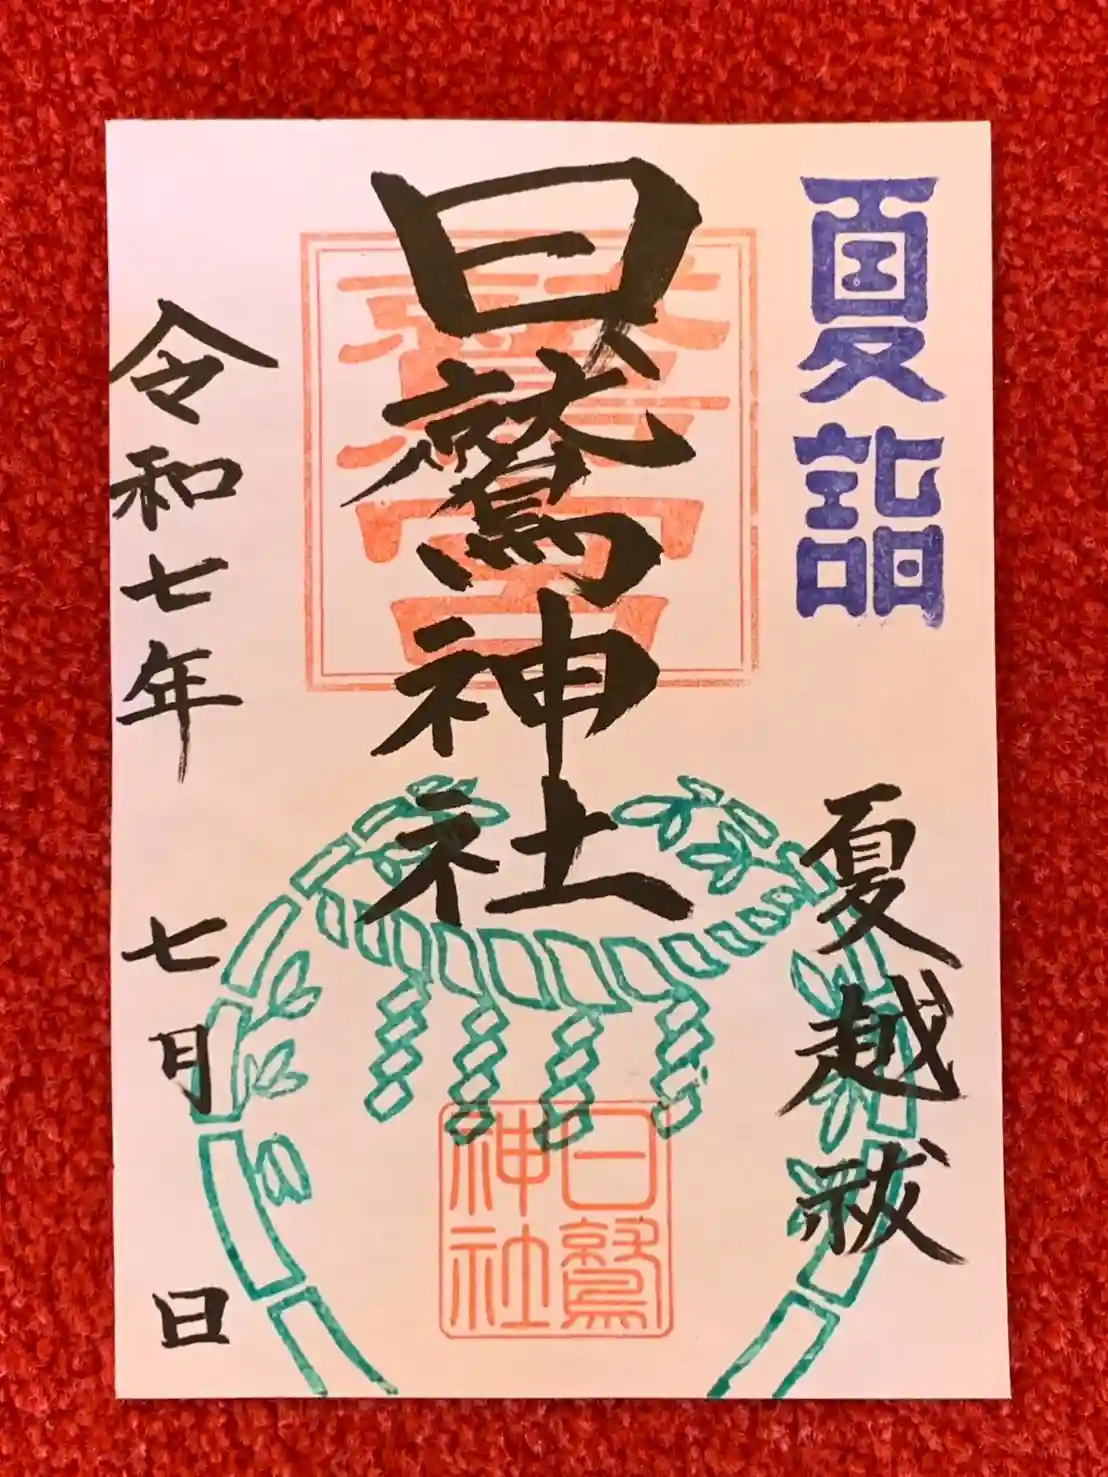 夏詣
夏越祓
日鷲神社
令和七年
七月
日
日鷲
神社